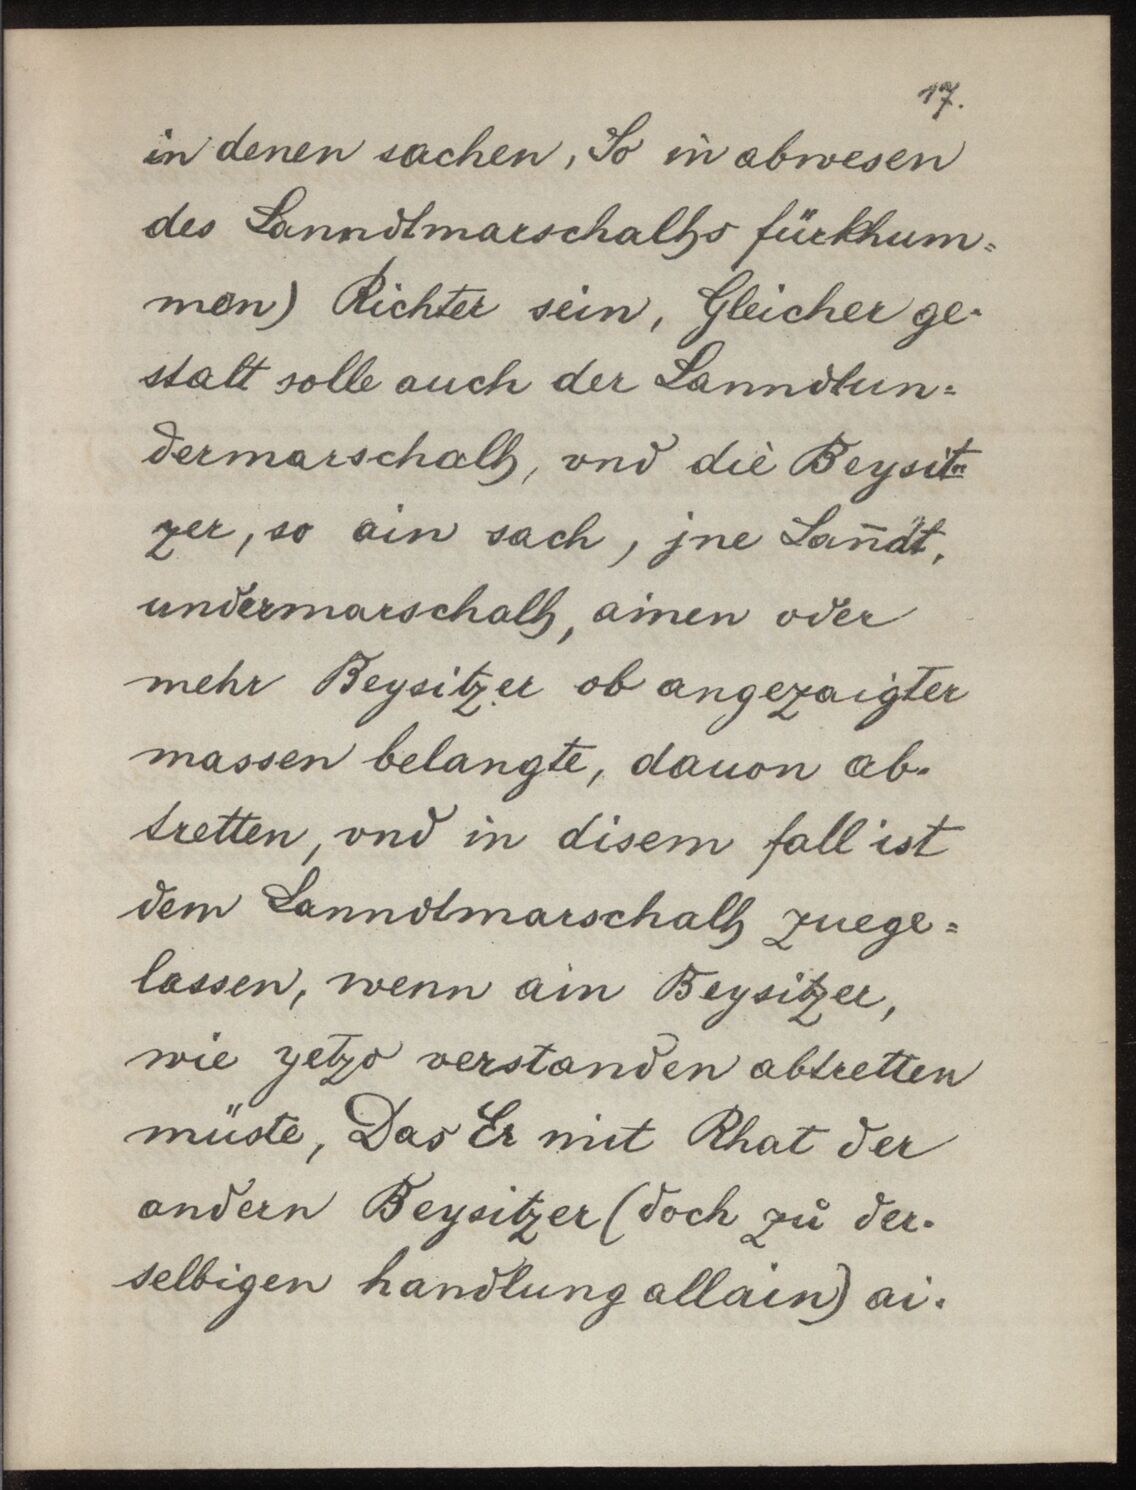 17.
in denen sachen, So in abwesen
des Lanndtmarschalhs fürkhum=
men) Richter sein, Gleicher ge-
stalt solle auch der Lanndtun=
dermarschalh, vnd die Beysit=
zer, so ain sach, jne Lan̄dt,
undermarschalh, ainen oder
mehr Beysitzer ob angezaigter
massen belangte, dauon ab-
tretten, vnd in disem fall ist
dem Lanndtmarschalh zuege=
lassen, wenn ain Beysitzer,
wie yetzo verstanden abtretten
müste, Das Er mit Rhat der
andern Beysitzer (doch zů der-
selbigen handlung allain) ai-